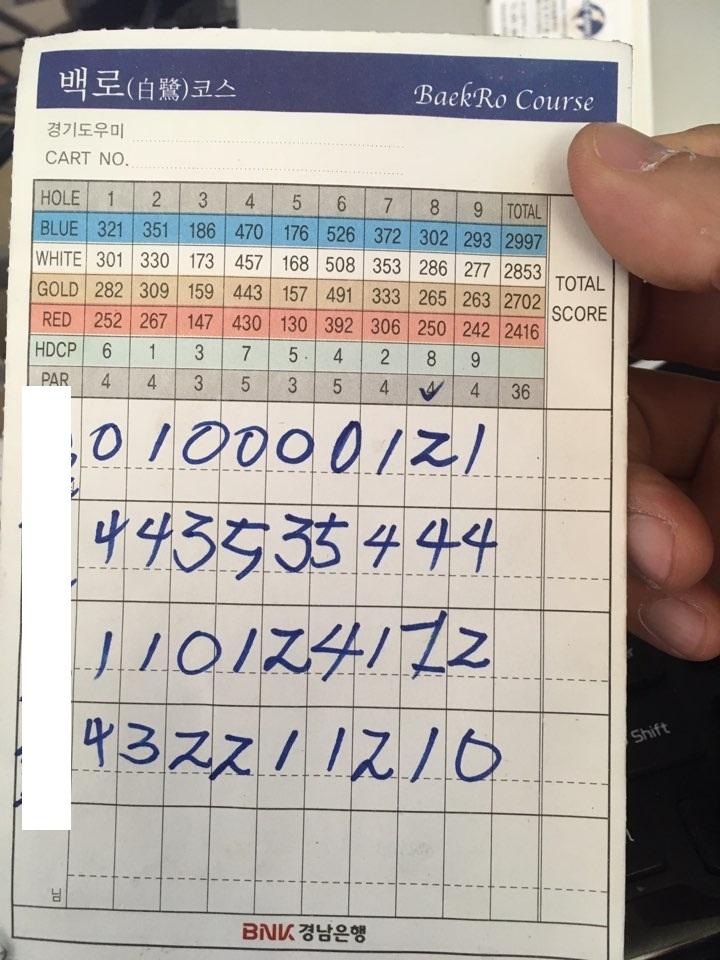 백로(白鷺)코스 BaekRo Course
경기도우미
CART NO.
HOLE 1 2 3 4 5 6 7 8 9 TOTAL
BLUE 321 351 186 470 176 526 372 302 293 2997
WHITE 301 330 173 457 168 508 353 286 277 2853
GOLD 282 309 159 443 157 491 333 265 263 2702
RED 252 267 147 430 130 392 306 250 242 2416
HDCP 6 1 3 7 5 4 2 8 9
PAR 4 4 3 5 3 5 4 4 4 36
TOTAL
SCORE
0 1 0 0 0 0 1 2 1
4 4 3 5 3 5 4 4 4
1 1 0 1 2 4 1 1 2
4 3 2 2 1 1 2 1 0
님
BNK 경남은행
Shift